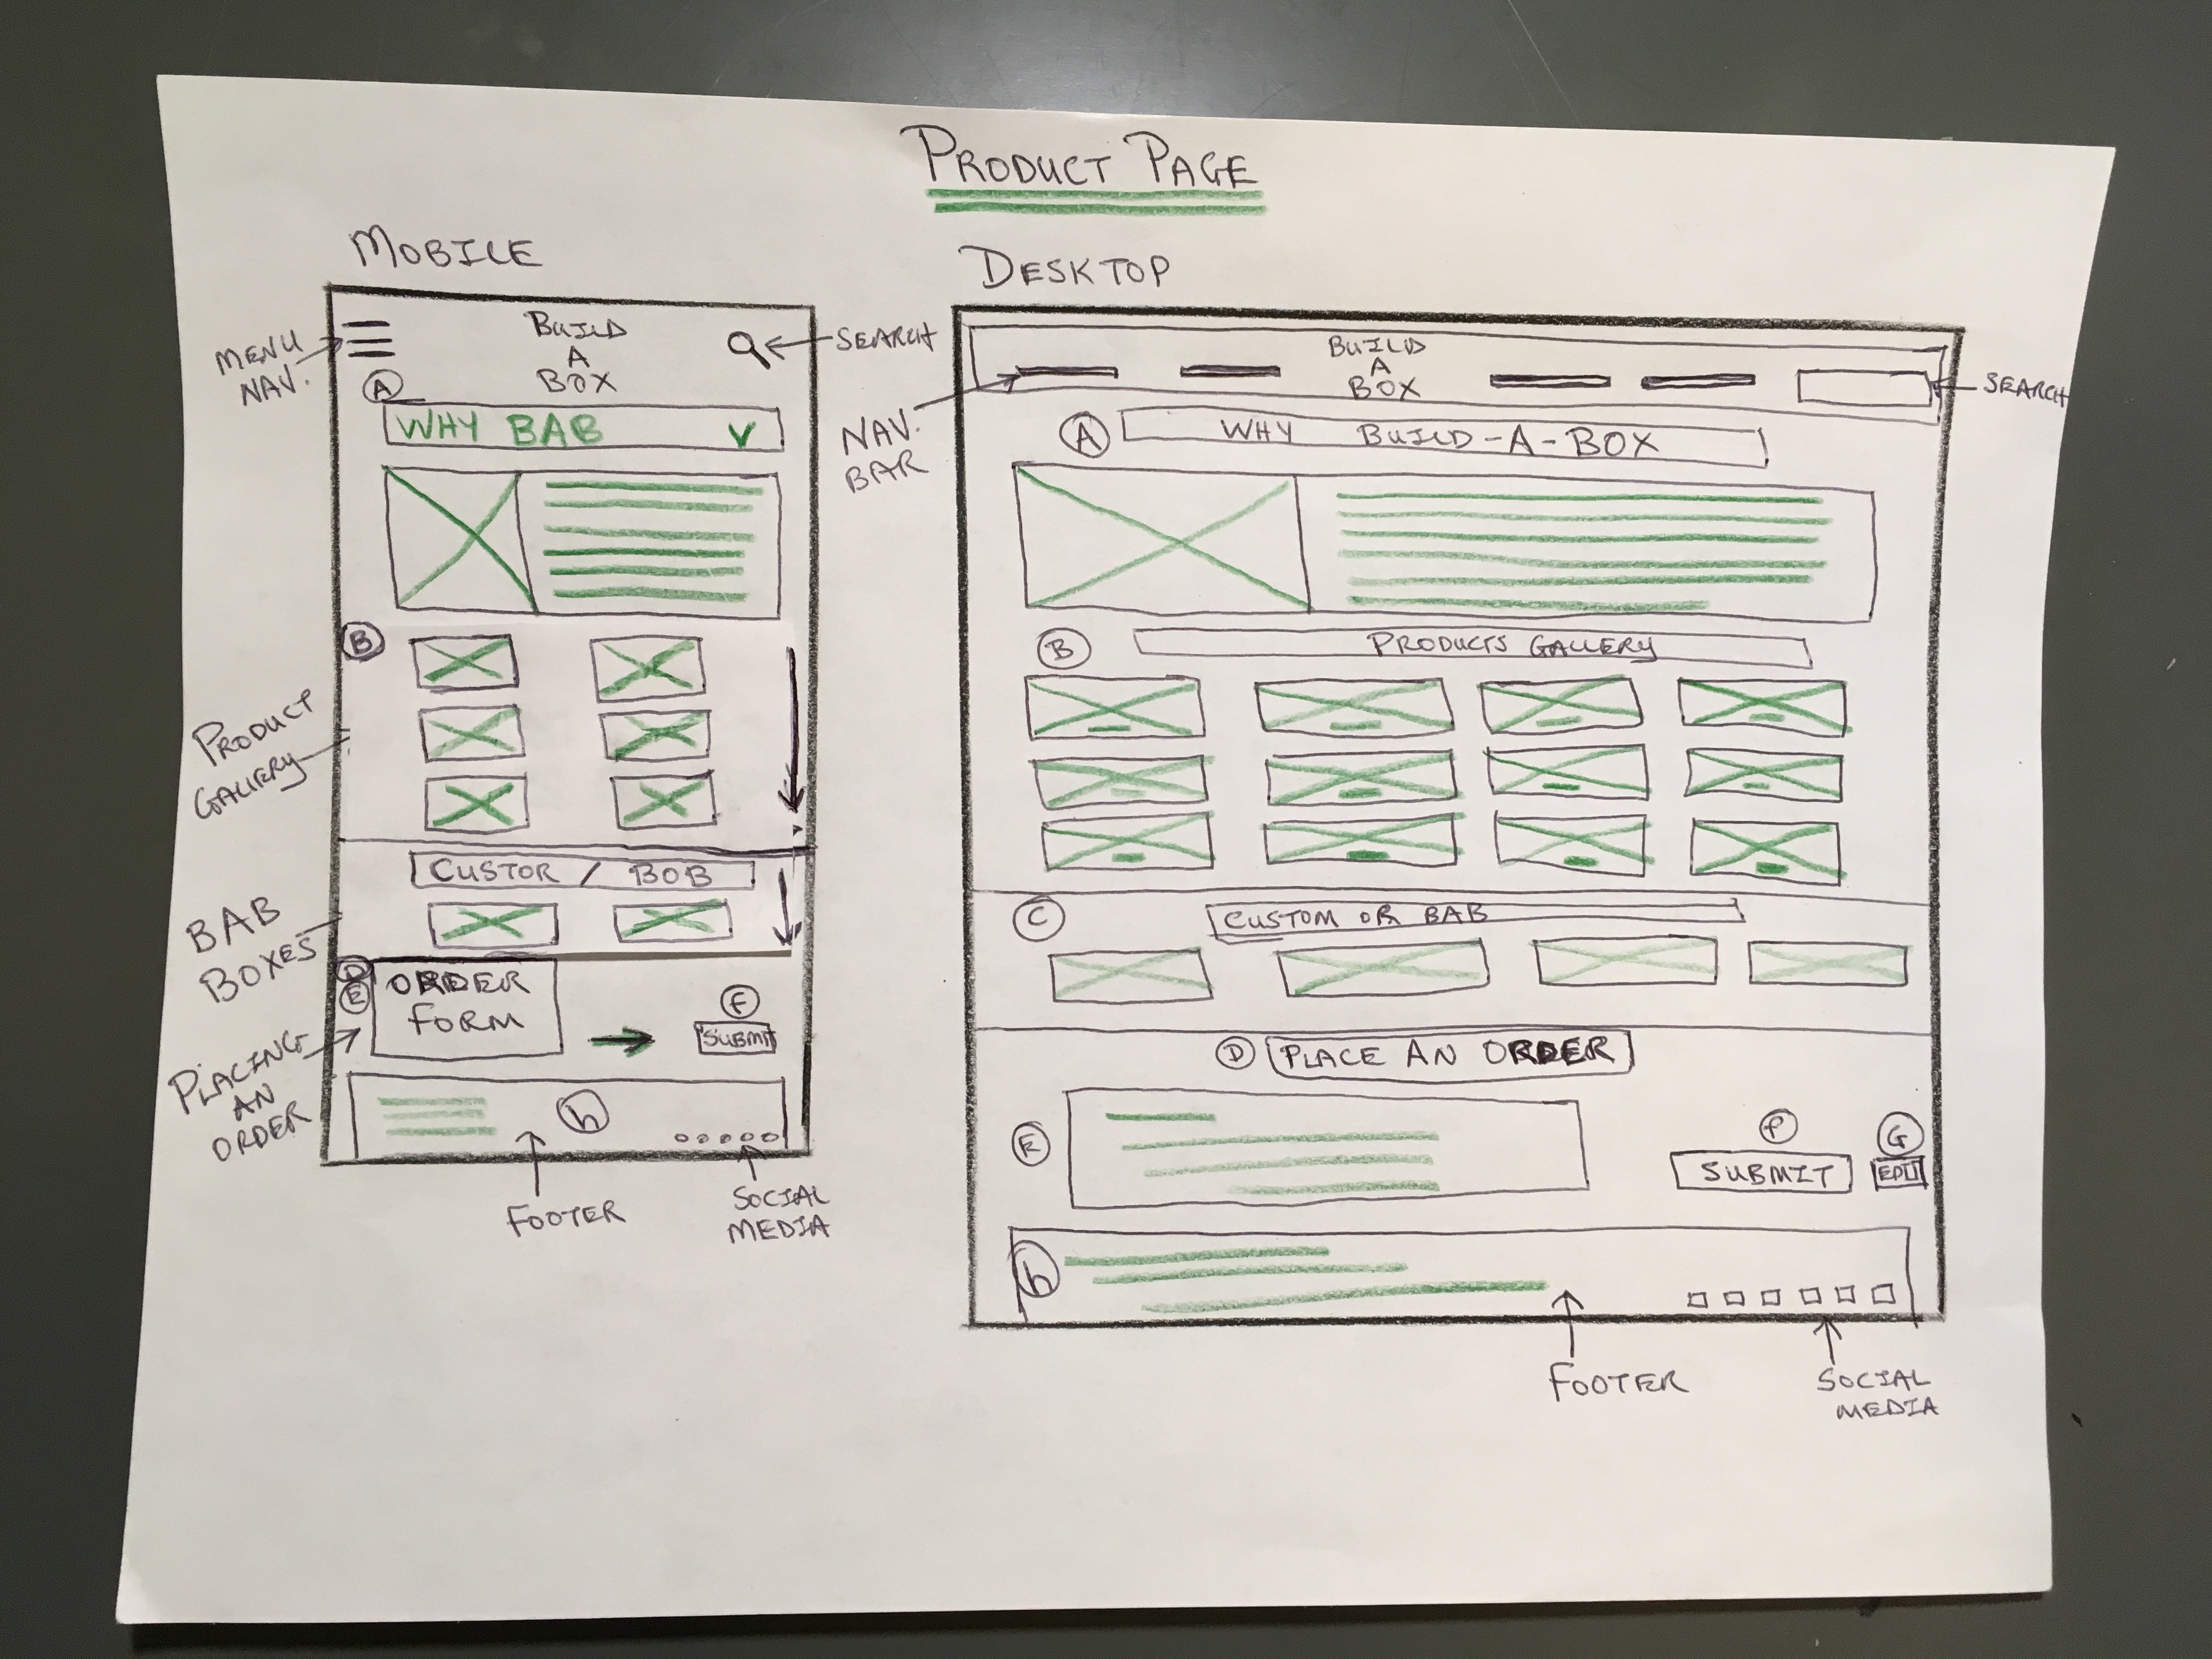 PRODUCT PAGE
MOBILE
MENU
NAV.
BUILD
A
BOX
SEARCH
A
WHY BAB
B
PRODUCT
GALLERY
CUSTOR / BOB
BAB
BOXES
D
E
ORDER
FORM
F
SUBMIT
PLACING
AN
ORDER
b
FOOTER
SOCIAL
MEDIA
DESKTOP
BUILD
A
BOX
SEARCH
NAV.
BAR
A
WHY BUILD-A-BOX
B
PRODUCTS GALLERY
C
CUSTOM OR BAB
D
PLACE AN ORDER
E
SUBMIT
G
b
FOOTER
SOCIAL
MEDIA